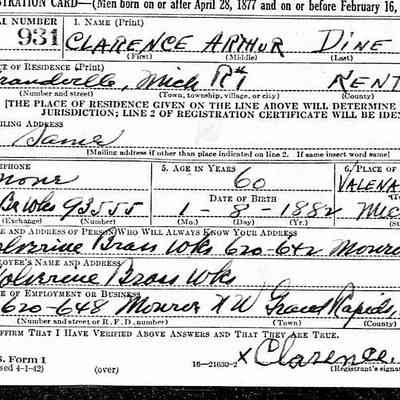 STRATION CARD—(Men born on or after April 28, 1877 and on or before February 16,
AL NUMBER 1. NAME (Print)
931 CLARENCE ARTHUR DINE
(First) (Middle) (Last)
CE OF RESIDENCE (Print)
randville, Mich R# KENT
(Number and street) (Town, township, village, or city) (County)
[THE PLACE OF RESIDENCE GIVEN ON THE LINE ABOVE WILL DETERMINE
JURISDICTION; LINE 2 OF REGISTRATION CERTIFICATE WILL BE IDEN
AILING ADDRESS
Same
[Mailing address if other than place indicated on line 2. If same insert word same]
EPHONE 5. AGE IN YEARS 6. PLACE OF
none 60 VALENA
DATE OF BIRTH
Br Wks 93555 1 - 8 - 1882 Mic
(Exchange) (Number) (Mo.) (Day) (Yr.)
E AND ADDRESS OF PERSON WHO WILL ALWAYS KNOW YOUR ADDRESS
olverine Brass Wks 620-642 Monro
LOYER'S NAME AND ADDRESS
olverine Brass Wks
CE OF EMPLOYMENT OR BUSINESS
620-648 Monroe N W Grand Rapids,
(Number and street or R. F. D. number) (Town) (County)
FFIRM THAT I HAVE VERIFIED ABOVE ANSWERS AND THAT THEY ARE TRUE.
S. Form 1
sed 4-1-42) (over) 16—21630-2 x Clarence
(Registrant's signa